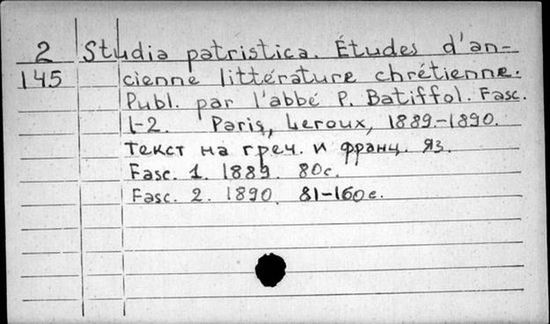 2 Studia patristica. Études d'an-
145 cienne littérature chrétienne.
Publ. par l'abbé P. Batiffol. Fasc.
1-2. Paris, Leroux, 1889.-1890.
Текст на греч. и франц. яз.
Fasc. 1. 1889. 80с.
Fasc. 2. 1890. 81-160с.